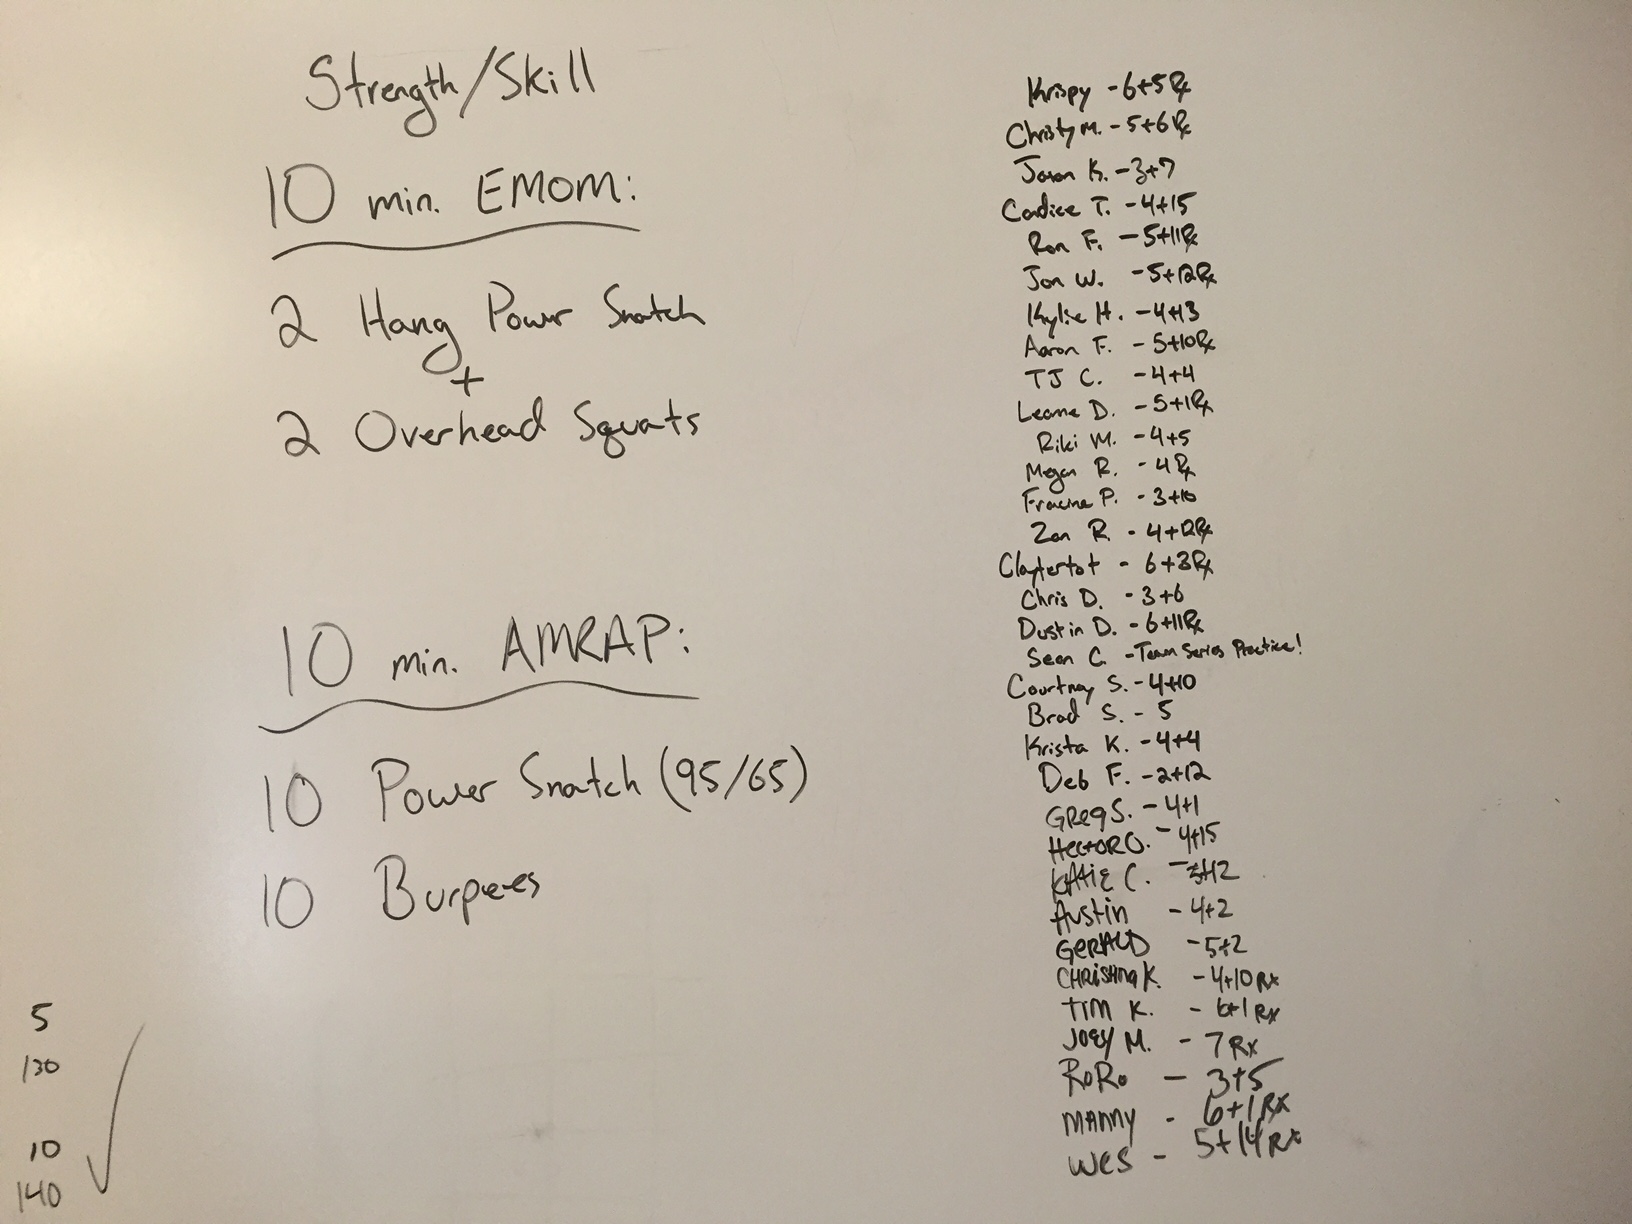 Strength/Skill
10 min. EMOM:
2 Hang Power Snatch
+
2 Overhead Squats
10 min. AMRAP:
10 Power Snatch (95/65)
10 Burpees
5
130
10
140
Krispy - 6+5 Rx
Christy M. - 5+6 Rx
Jason K. - 3+7
Candice T. - 4+15
Ron F. - 5+11 Rx
Jon W. - 5+12 Rx
Kylie H. - 4+13
Aaron F. - 5+10 Rx
TJ C. - 4+4
Leanne D. - 5+1 Rx
Riki M. - 4+5
Megan R. - 4 Rx
Francine P. - 3+10
Zan R. - 4+12 Rx
Claytertot - 6+3 Rx
Chris D. - 3+6
Dustin D. - 6+11 Rx
Sean C. - Team Series Practice!
Courtney S. - 4+10
Brad S. - 5
Krista K. - 4+4
Deb F. - 2+12
GREG S. - 4+1
HECTOR O. - 4+15
KATIE C. - 3+12
AUSTIN - 4+2
GERALD - 5+2
CHRISTINA K. - 4+10 Rx
TIM K. - 6+1 Rx
JOEY M. - 7 Rx
RoRo - 3+5
MANNY - 6+1 RX
WES - 5+14 Rx